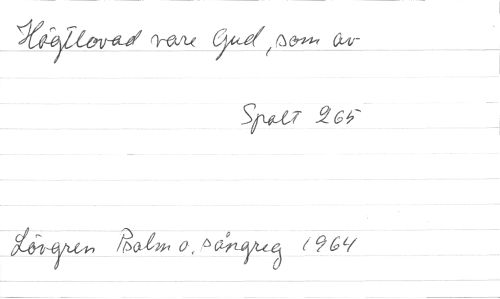 Högtlovad vare Gud, som av
Spalt 265
Lövgren Psalm o. sångreg 1964